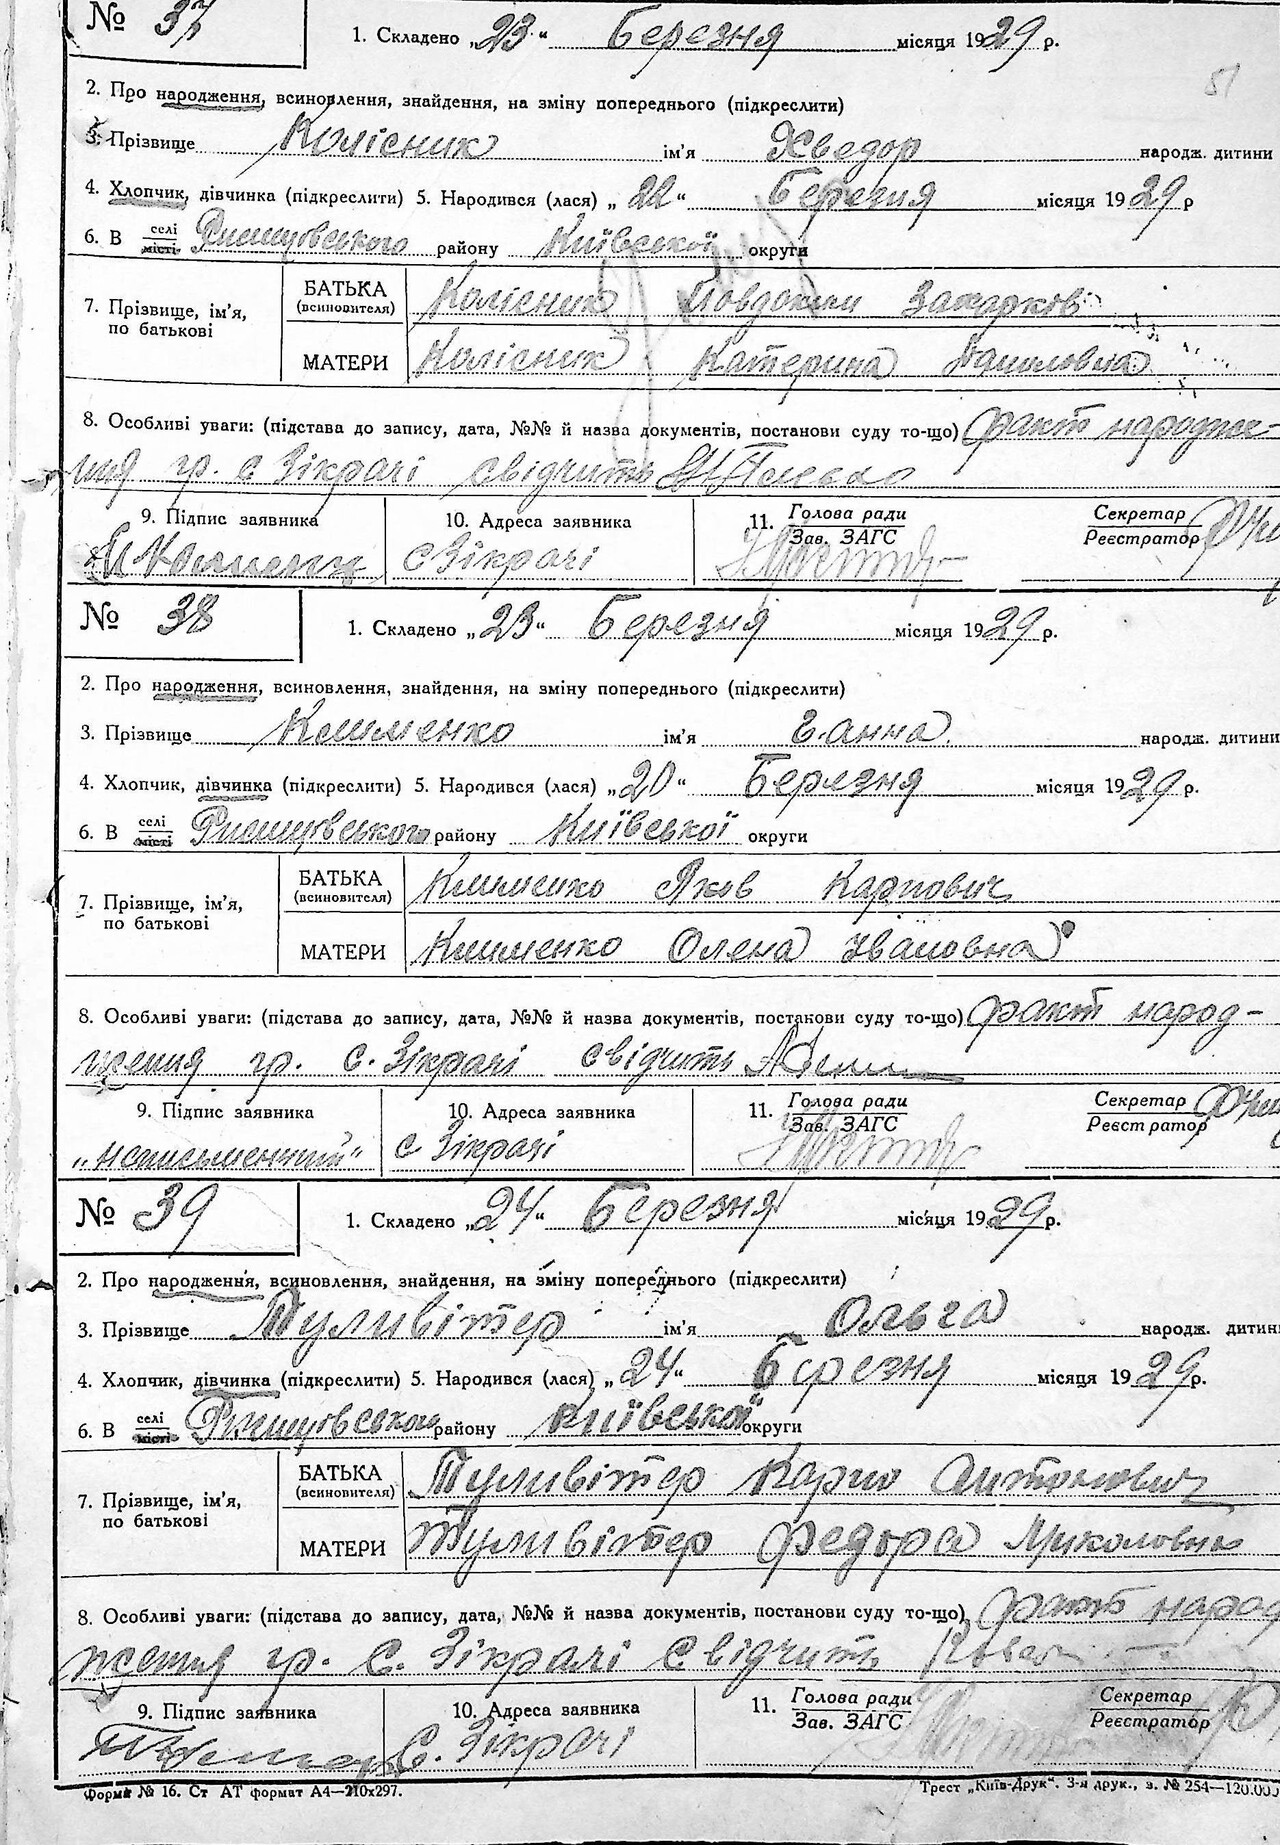 № 37
1. Складено „23“ Березня місяця 1929 р.
51
2. Про народження, всиновлення, знайдення, на зміну попереднього (підкреслити)
3. Прізвище Колісник ім’я Хведор народж. дитини
4. Хлопчик, дівчинка (підкреслити) 5. Народився (лася) „22“ Березня місяця 1929 р
6. В селі місті Ржищівського району Київської округи
7. Прізвище, ім’я, по батькові
БАТЬКА (всиновителя) Колісник Явдоким Захарков
МАТЕРИ Колісник Катерина
8. Особливі уваги: (підстава до запису, дата, №№ й назва документів, постанови суду то-що) факт народже-
ння гр. с Зікрачі свідчить
9. Підпис заявника
10. Адреса заявника
11. Голова ради Зав. ЗАГС
Секретар Реєстратор
с Зікрачі
№ 38
1. Складено „23“ Березня місяця 1929 р.
2. Про народження, всиновлення, знайдення, на зміну попереднього (підкреслити)
3. Прізвище Клименко ім’я Ганна народж. дитини
4. Хлопчик, дівчинка (підкреслити) 5. Народився (лася) „20“ Березня місяця 1929 р.
6. В селі місті Ржищівського району Київської округи
7. Прізвище, ім’я, по батькові
БАТЬКА (всиновителя) Клименко Яков Карпович
МАТЕРИ Клименко Олена Івановна
8. Особливі уваги: (підстава до запису, дата, №№ й назва документів, постанови суду то-що) факт народ-
ження гр. с. Зікрачі свідчить
9. Підпис заявника
10. Адреса заявника
11. Голова ради Зав. ЗАГС
Секретар Реєстратор
„неписьменний“
с Зікрачі
№ 39
1. Складено „24“ Березня місяця 1929 р.
2. Про народження, всиновлення, знайдення, на зміну попереднього (підкреслити)
3. Прізвище Туливітер ім’я Ольга народж. дитини
4. Хлопчик, дівчинка (підкреслити) 5. Народився (лася) „24“ Березня місяця 1929 р.
6. В селі місті Ржищівського району Київської округи
7. Прізвище, ім’я, по батькові
БАТЬКА (всиновителя) Туливітер Карпо Антонович
МАТЕРИ Туливітер Федора Миколовна
8. Особливі уваги: (підстава до запису, дата, №№ й назва документів, постанови суду то-що) факт народ
ження гр. с. Зікрачі свідчить
9. Підпис заявника
10. Адреса заявника
11. Голова ради Зав. ЗАГС
Секретар Реєстратор
с. Зікрачі
Форма № 16. Ст АТ формат А4—210х297.
Трест „Київ-Друк“. 3-я друк., з. № 254—120.000